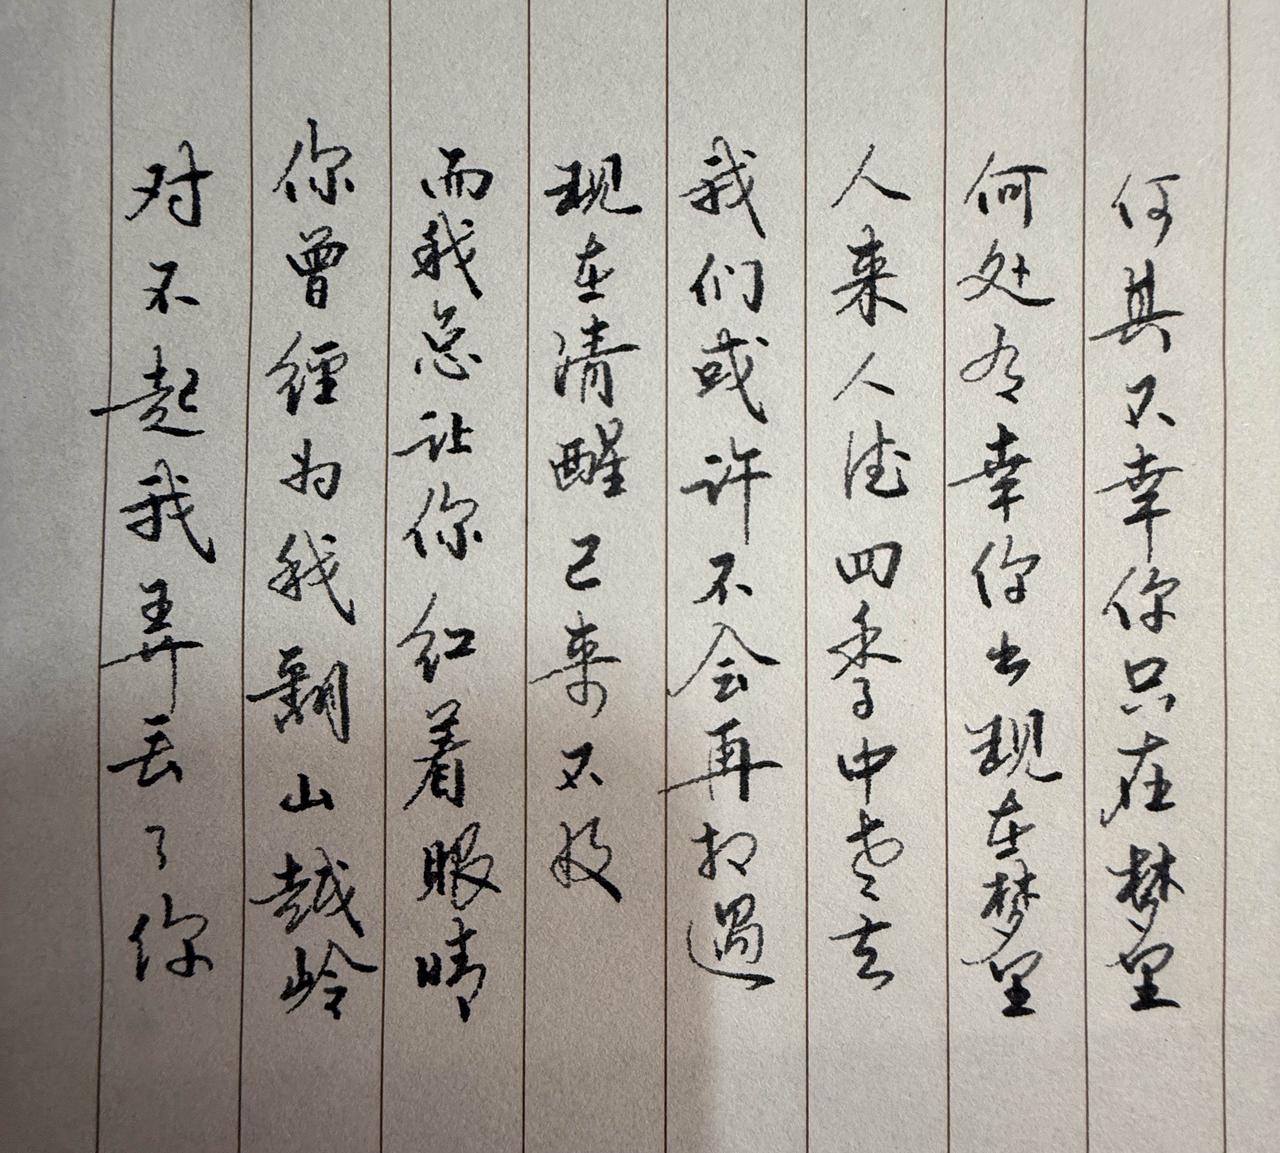 何其不幸你只在梦里
何处有幸你出现在梦里
人来人往四季中老去
我们或许不会再相遇
现在清醒已来不及
而我总让你红着眼睛
你曾经为我翻山越岭
对不起我弄丢了你